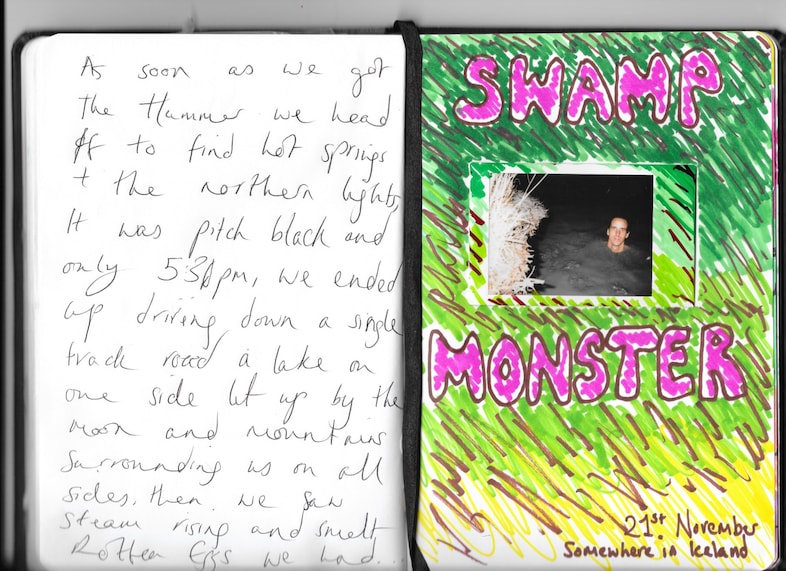 As soon as we got
the Hummer we head
off to find hot springs
+ the northern lights,
It was pitch black and
only 530pm, we ended
up driving down a single
track road a lake on
one side lit up by the
moon and mountains
surrounding us on all
sides. then we saw
steam rising and smelt
Rotten Eggs we had...
SWAMP
MONSTER
21st November
Somewhere in Iceland